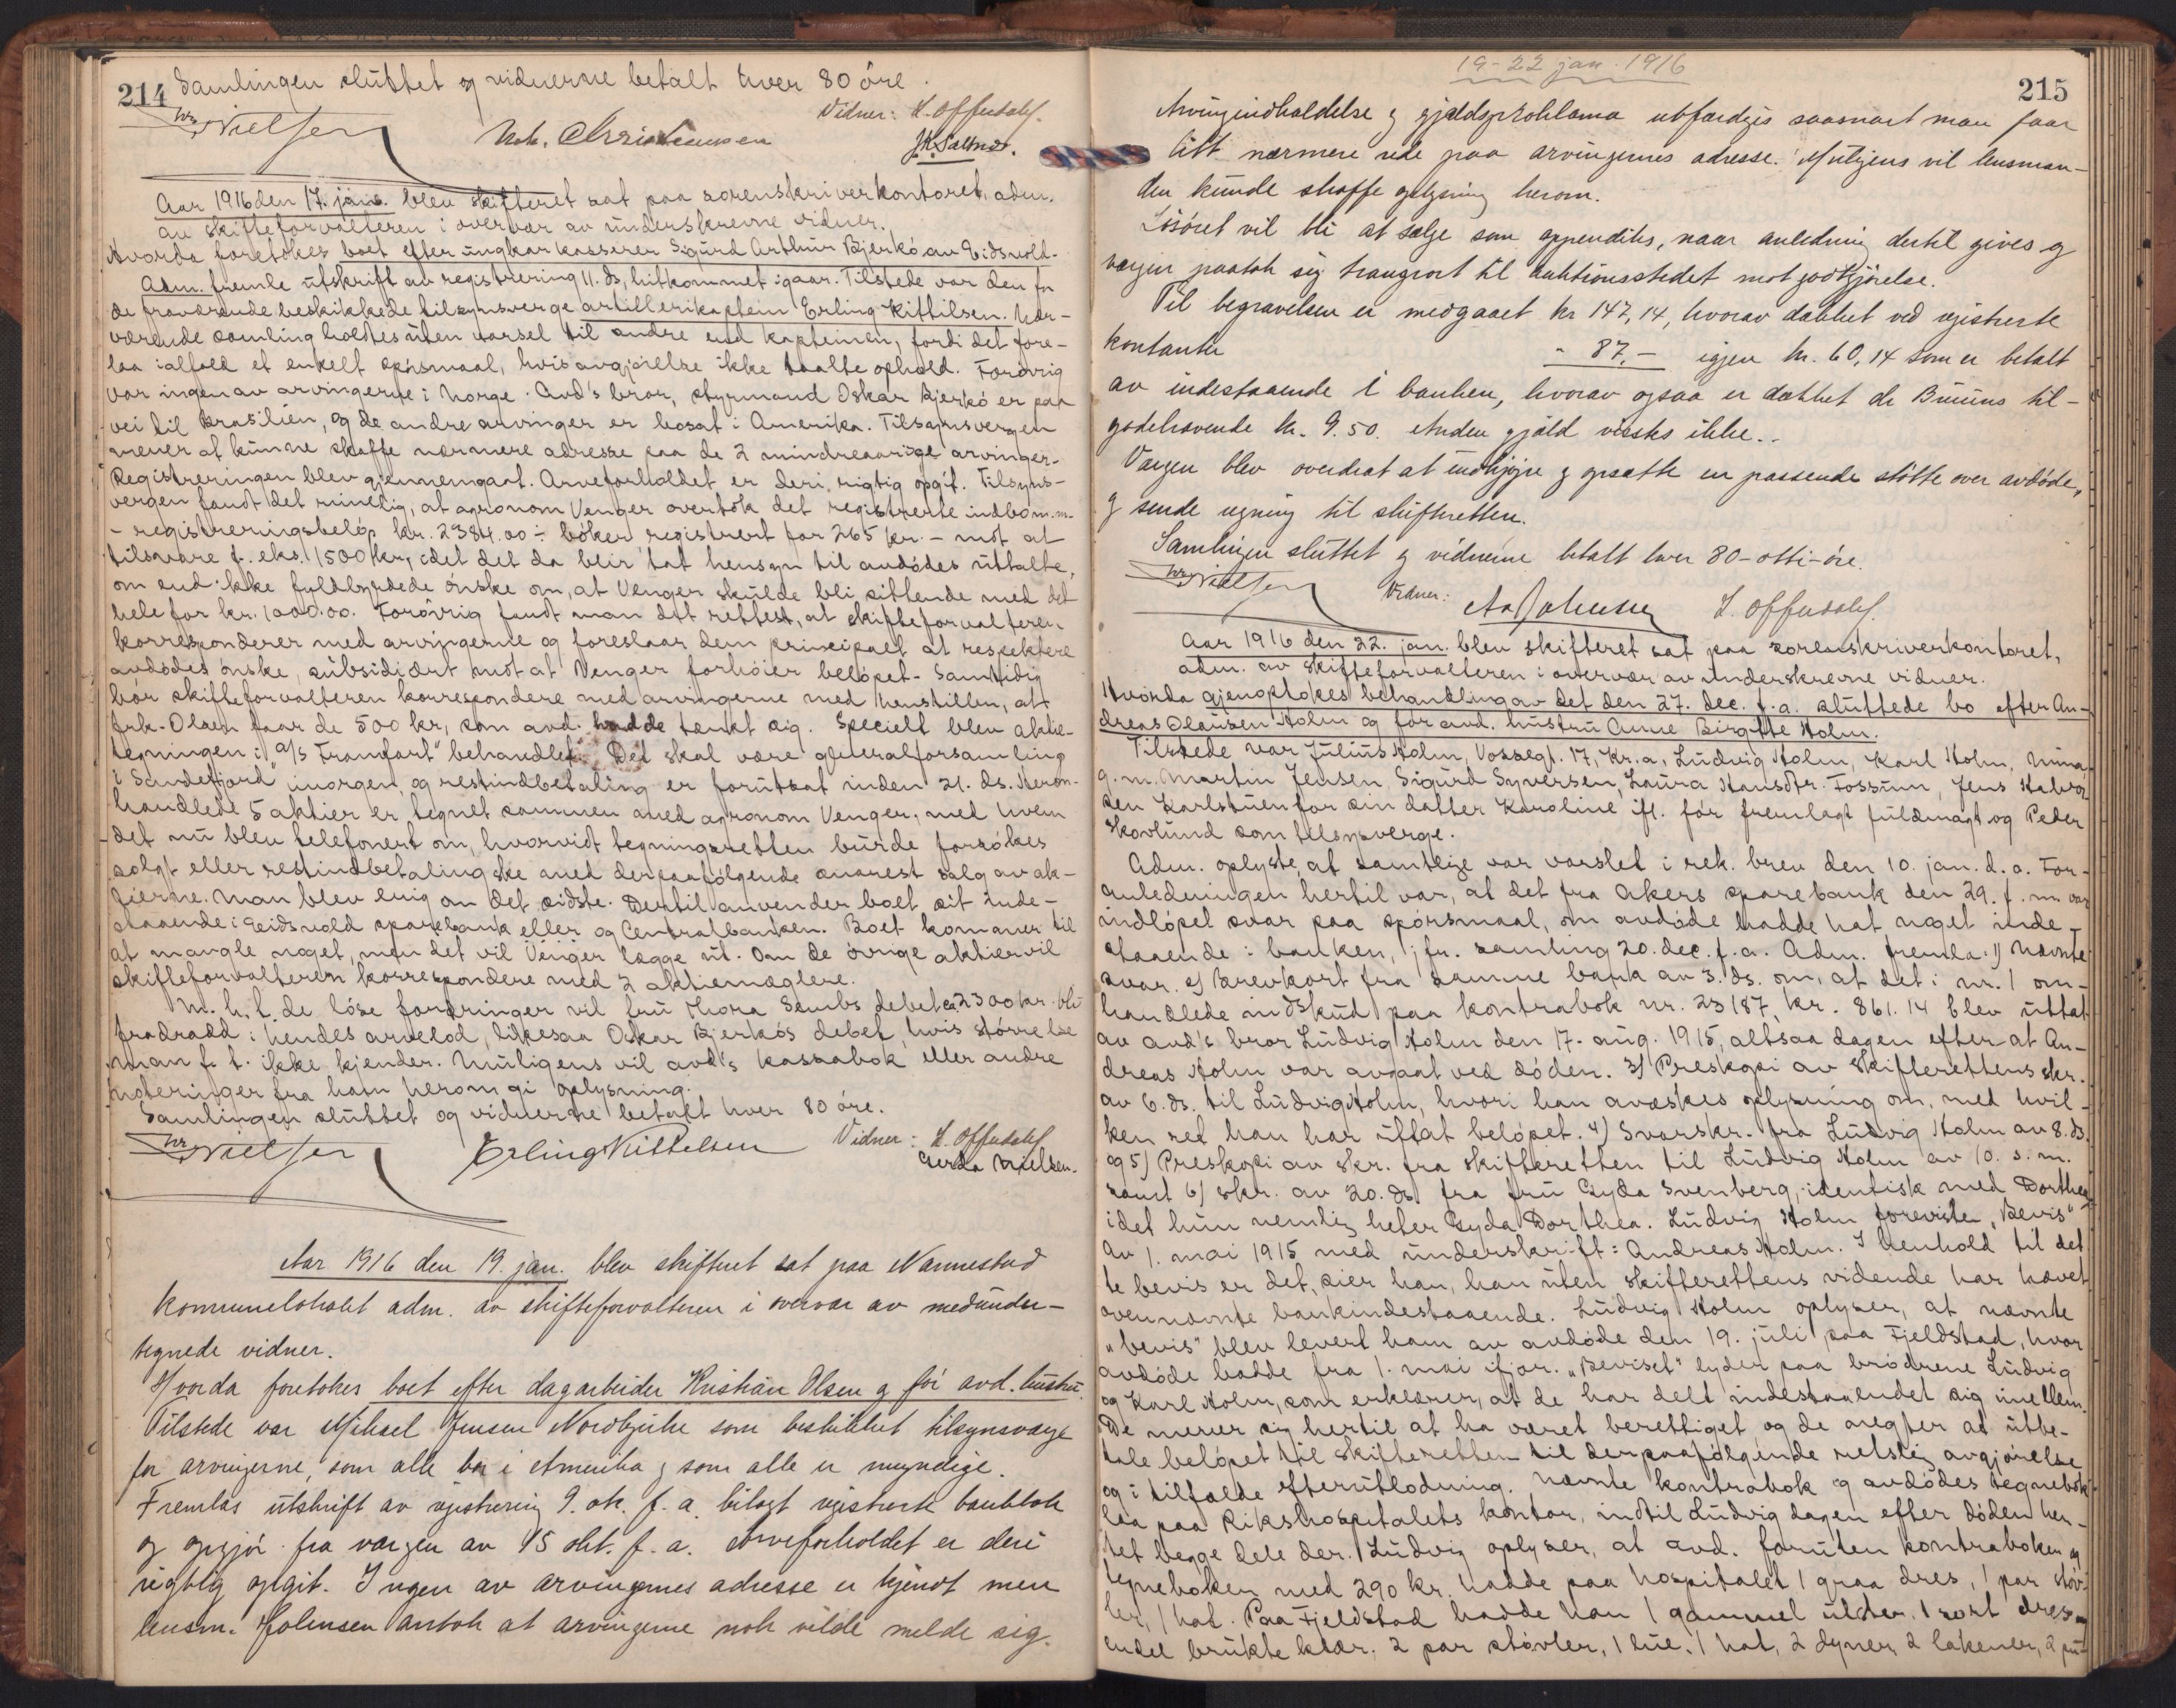 214 Samlingen sluttet og vidnerne betalt hver 80 øre.
Nielsen Vidner: H. Offerdahl.
Nok. Christensen
Aar 1916 den 17. jan. blev skifteret sat paa sorenskriverkontoret, adm.
av skifteforvalteren i overvær av underskrevne vidner.
Hvorda foretokes boet efter ungkar kasserer Sigurd Arthur Bjerkó av Eidsvold.
Adm. fremla utskrift av registrering 11. ds, hitkommet igaar. Tilstede var den for
de fraværende beskikkede tilsynsverge artillerikaptein Erling Kittilsen. Nær-
værende samling holdtes uten varsel til andre end kapteinen, fordi det fore-
laa ialfald et enkelt spørsmaal, hvis avgjørelse ikke taalte ophold. Forøvrig
var ingen av arvingerne i Norge. Avd's bror, styrmand Oskar Bjerkó er paa
vei til Brasilien, og de andre arvinger er bosat i Amerika. Tilsynsvergen
mener at kunne skaffe nærmere adresse paa de 2 mindreaarige arvinger.
Registreringen blev gjennemgaat. Arveforholdet er deri rigtig opgit. Tilsyns-
vergen fandt det rimelig, at agronom Venger overtok det registrerte indbo m.m.
- registreringsbeløp kr. 2384.00 ÷ bøker registrert for 265 kr. - mot at
tilsvare f. eks. 1500 kr, idet det da blir tat hensyn til avdødes uttalte,
om end ikke fyldbyrdede ønske om, at Venger skulde bli sittende med det
hele for kr. 1000.00. Forøvrig fandt man det rettest, at skifteforvalteren
korresponderer med arvingerne og foreslaar dem principalt at respektere
avdødes ønske, subsidiært mot at Venger forhøier beløpet. Samtidig
bør skifteforvalteren korrespondere med arvingerne med henstillen, at
frk. Olsen faar de 500 kr, som avd. hadde tænkt sig. Specielt blev aktie-
tegningen i "a/s Framfart" behandlet. Det skal være generalforsamling
i Sandefjord imorgen, og restindbetaling er forutsat inden 21. ds. Herom-
handlede 5 aktier er tegnet sammen med agronom Venger, med hvem
det nu blev telefonert om, hvorvidt tegningsretten burde forsøkes
solgt eller restindbetaling ske med derpaafølgende snarest salg av ak-
tierne. Man blev enig om det sidste. Dertil anvender boet sit inde-
staaende i Eidsvold sparebank eller og Centralbanken. Boet kommer til
at mangle noget, men det vil Venger lægge ut. Om de øvrige aktier vil
skifteforvalteren korrespondere med 2 aktiemæglere.
M. h. t. de løse fordringer vil fru Thora Sembs debet ca 2300 kr. bli
fradradd i hendes arvelod, likesaa Oskar Bjerkós debet, hvis størrelse
man f. t. ikke kjender. Muligens vil avd's kassabok eller andre
noteringer fra ham herom gi oplysning.
Samlingen sluttet og vidnerne betalt hver 80 øre.
Nielsen Erling Kittelsen Vidner: H. Offerdahl
Gerda Nielsen.
Aar 1916 den 19. jan. blev skifteret sat paa Nannestad
kommunelokalet adm. av skifteforvalteren i overvær av medunder-
tegnede vidner.
Hvorda foretokes boet efter dagarbeider Kristian Olsen og før avd. hustru.
Tilstede var Mikael Jensen Nordbjerke som beskikket tilsynsværge
for arvingerne, som alle bor i Amerika og som alle er myndige.
Fremlas utskrift av registrering 9. ok. f. a. bilagt registrert bankbok
og opgjør fra værgen av 15 okt. f. a. Arveforholdet er deri
rigtig opgit. Ingen av arvingernes adresse er kjendt men
lensm. Johnsen antok at arvingerne nok vilde melde sig.
19-22 jan. 1916
215
Arvingindkaldelse og gjældsproklama utfærdiges saasnart man faar
litt nærmere rede paa arvingernes adresse. Muligens vil lensman-
den kunde skaffe oplysning herom.
Løsøret vil bli at sælge som appendiks, naar anledning dertil gives og
værgen paatok sig transport til auktionsstedet mot godtgjørelse.
Til begravelsen er medgaaet kr 147,14, hvorav dækket ved registrerte
kontanter " 87.- igjen kr. 60,14 som er betalt
av indestaaende i banken, hvorav ogsaa er dækket dr Bruuns til-
godehavende kr. 9.50. Anden gjæld vissts ikke.
Værgen blev overdrat at indkjøpe og opsætte en passende støtte over avdøde,
og sende regning til skifteretten.
Samlingen sluttet og vidnerne betalt hver 80-otti-øre.
Nielsen Vidner: H. Offerdahl.
Aar 1916 den 22. jan. blev skifteret sat paa sorenskriverkontoret,
adm. av skifteforvalteren i overvær av underskrevne vidner.
Hvorda gjenoptokes behandling av det den 27. dec. f. a. sluttede bo efter An-
dreas Olausen Holm og før avd. hustru Anne Birgitte Holm.
Tilstede var Julius Holm, Vossegt. 17, Kr.a, Ludvig Holm, Karl Holm, Nina
g. m. Martin Jensen, Sigurd Syversen, Laura Hansdtr. Fossum, Jens Halvor-
sen Karlstuen for sin datter Karoline ifl. før fremlagt fuldmagt og Peder
Skovlund som tilsynsverge.
Adm. oplyste, at samtlige var varslet i rek. brev den 10. jan. d. a. For-
anledningen hertil var, at det fra Akers sparebank den 29. f. m. var
indløpet svar paa spørsmaal, om avdøde hadde hat noget inde-
staaende i banken, jfr. samling 20. dec. f. a. Adm. fremla: 1) Nævnte
svar. 2) Brevkort fra samme bank av 3. ds. om, at det i nr. 1 om-
handlede indskud paa kontrabok nr. 23187, kr. 861.14 blev uttat
av avd's bror Ludvig Holm den 17. aug. 1915, altsaa dagen efter at An-
dreas Holm var avgaat ved døden. 3) Preskopi av skifterettens skr.
av 6. ds. til Ludvig Holm, hvori han avæskes oplysning om, med hvil-
ken ret han har uttat beløpet. 4) Svarskr. fra Ludvig Holm av 8. ds.
og 5) Preskopi av skr. fra skifteretten til Ludvig Holm av 10. s. m.
samt 6) skr. av 20. ds. fra fru Gyda Svenberg, identisk med Dorthea
idet hun nemlig heter Gyda Dorthea. Ludvig Holm foreviste "Bevis"
av 1. mai 1915 med underskrift: Andreas Holm. I henhold til det-
te bevis er det, sier han, han uten skifterettens vidende har hævet
ovennævnte bankindestaaende. Ludvig Holm oplyser, at nævnte
"bevis" blev levert ham av avdøde den 19. juli paa Fjeldstad, hvor
avdøde hadde fra 1. mai ifjor. "Beviset" lyder paa brødrene Ludvig
og Karl Holm, som erklærer, at de har delt indestaaendet sig imellem.
De mener sig hertil at ha været berettiget og de negter at utbe-
tale beløpet til skifteretten til derpaafølgende retslig avgjørelse
og i tilfælde efterutlodning. Nævnte kontrabok og avdødes tegnebok
laa paa Rikshospitalets kontor, indtil Ludvig dagen efter døden hen-
tet begge dele der. Ludvig oplyser, at avd. foruten kontraboken og
tegneboken med 290 kr. hadde paa hospitalet 1 graa dres, 1 par støv-
ler, 1 hat. Paa Fjeldstad hadde han 1 gammel ulster, 1 sort dres og
endel brukte klær, 2 par støvler, 1 lue, 1 hat, 2 dyner, 2 lakener, 2 pu-